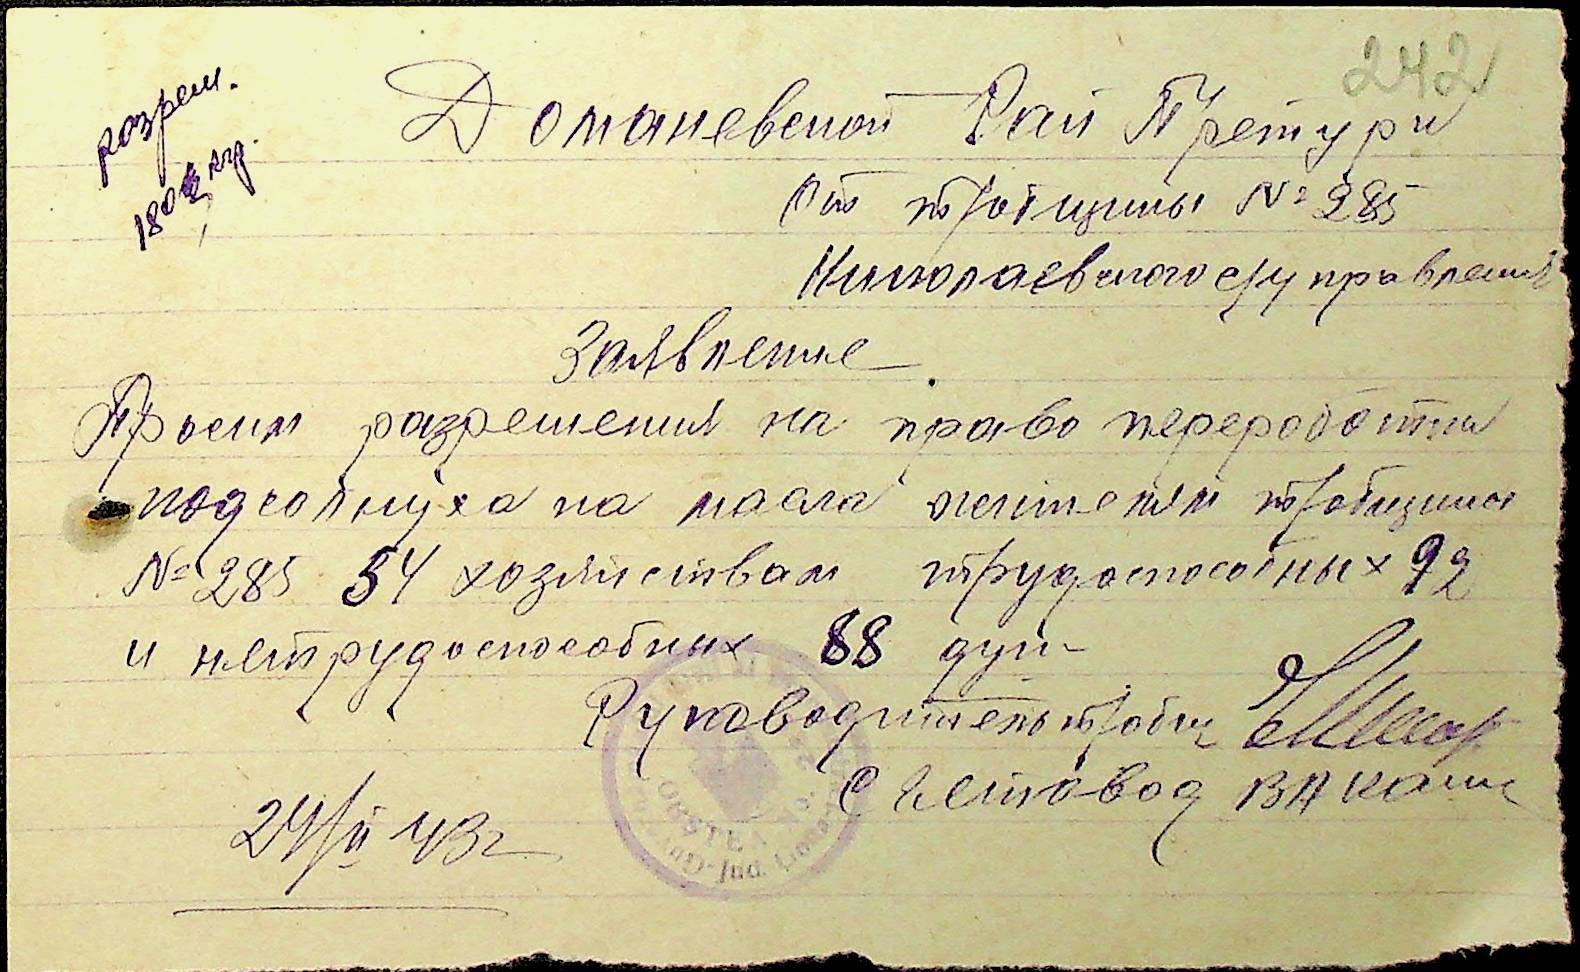 242
разреш.
180 кгр.
Доманевской Рай Претури
От тробищины № 285
Николаевского с/управления
Заявление
Просим разрешения на право переработки
подсолнуха на масла жителям тробищины
№ 285 54 хозяйствам трудоспособных 92
и нетрудоспособных 88 душ
Руководитель тробищ
Счетовод
24/II 43 г